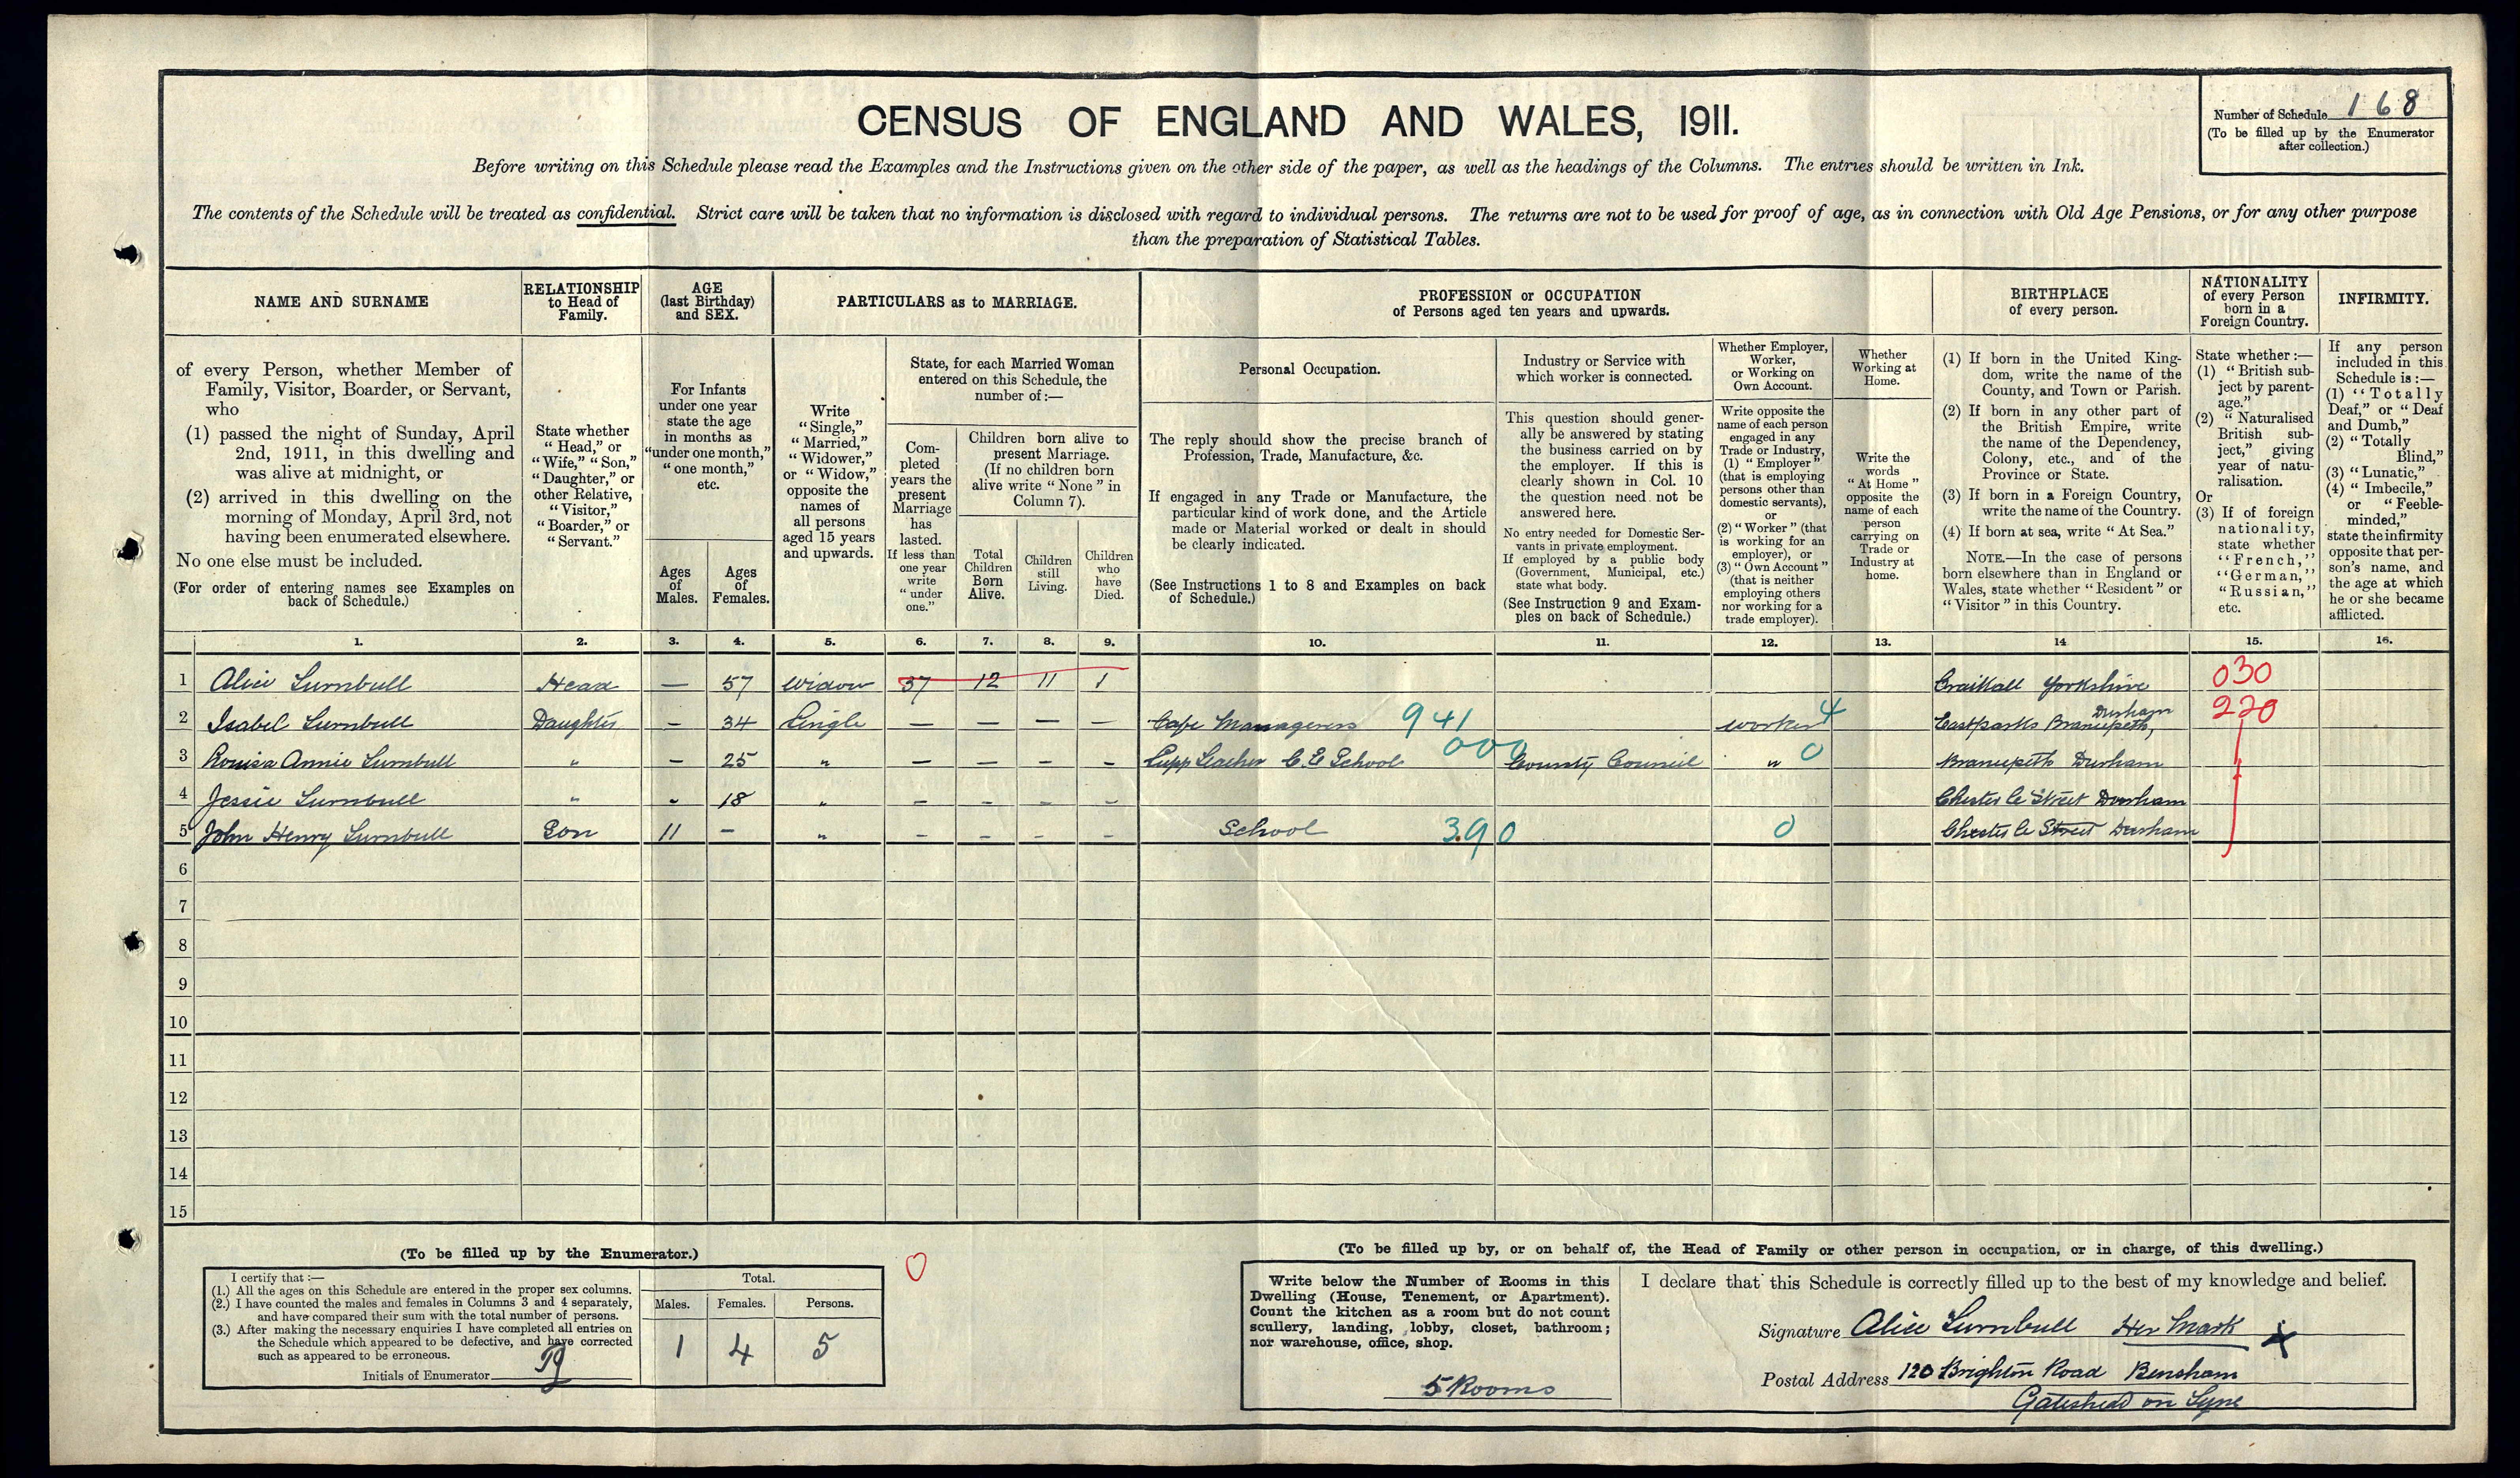 CENSUS OF ENGLAND AND WALES, 1911.
Number of Schedule 168
(To be filled up by the Enumerator
after collection.)
Before writing on this Schedule please read the Examples and the Instructions given on the other side of the paper, as well as the headings of the Columns. The entries should be written in Ink.
The contents of the Schedule will be treated as confidential. Strict care will be taken that no information is disclosed with regard to individual persons. The returns are not to be used for proof of age, as in connection with Old Age Pensions, or for any other purpose
than the preparation of Statistical Tables.
NAME AND SURNAME
of every Person, whether Member of
Family, Visitor, Boarder, or Servant,
who
(1) passed the night of Sunday, April
2nd, 1911, in this dwelling and
was alive at midnight, or
(2) arrived in this dwelling on the
morning of Monday, April 3rd, not
having been enumerated elsewhere.
No one else must be included.
(For order of entering names see Examples on
back of Schedule.)
RELATIONSHIP
to Head of
Family.
State whether
"Head," or
"Wife," "Son,"
"Daughter," or
other Relative,
"Visitor,"
"Boarder," or
"Servant."
AGE
(last Birthday)
and SEX.
For Infants
under one year
state the age
in months as
"under one month,"
"one month,"
etc.
Ages
of
Males.
Ages
of
Females.
PARTICULARS as to MARRIAGE.
Write
"Single,"
"Married,"
"Widower,"
or "Widow,"
opposite the
names of
all persons
aged 15 years
and upwards.
State, for each Married Woman
entered on this Schedule, the
number of:—
Com-
pleted
years the
present
Marriage
has
lasted.
If less than
one year
write
"under
one."
Children born alive to
present Marriage.
(If no children born
alive write "None" in
Column 7).
Total
Children
Born
Alive.
Children
still
Living.
Children
who
have
Died.
PROFESSION or OCCUPATION
of Persons aged ten years and upwards.
Personal Occupation.
The reply should show the precise branch of
Profession, Trade, Manufacture, &c.
If engaged in any Trade or Manufacture, the
particular kind of work done, and the Article
made or Material worked or dealt in should
be clearly indicated.
(See Instructions 1 to 8 and Examples on back
of Schedule.)
Industry or Service with
which worker is connected.
This question should gener-
ally be answered by stating
the business carried on by
the employer. If this is
clearly shown in Col. 10
the question need not be
answered here.
No entry needed for Domestic Ser-
vants in private employment.
If employed by a public body
(Government, Municipal, etc.)
state what body.
(See Instruction 9 and Exam-
ples on back of Schedule.)
Whether Employer,
Worker,
or Working on
Own Account.
Write opposite the
name of each person
engaged in any
Trade or Industry,
(1) "Employer"
(that is employing
persons other than
domestic servants),
or
(2) "Worker" (that
is working for an
employer), or
(3) "Own Account"
(that is neither
employing others
nor working for a
trade employer).
Whether
Working at
Home.
Write the
words
"At Home"
opposite the
name of each
person
carrying on
Trade or
Industry at
home.
BIRTHPLACE
of every person.
(1) If born in the United King-
dom, write the name of the
County, and Town or Parish.
(2) If born in any other part of
the British Empire, write
the name of the Dependency,
Colony, etc., and of the
Province or State.
(3) If born in a Foreign Country,
write the name of the Country.
(4) If born at sea, write "At Sea."
NOTE.—In the case of persons
born elsewhere than in England or
Wales, state whether "Resident" or
"Visitor" in this Country.
NATIONALITY
of every Person
born in a
Foreign Country.
State whether:—
(1) "British sub-
ject by parent-
age."
(2) "Naturalised
British sub-
ject," giving
year of natu-
ralisation.
Or
(3) If of foreign
nationality,
state whether
"French,"
"German,"
"Russian,"
etc.
INFIRMITY.
If any person
included in this
Schedule is:—
(1) "Totally
Deaf," or "Deaf
and Dumb,"
(2) "Totally
Blind,"
(3) "Lunatic,"
(4) "Imbecile,"
or "Feeble-
minded,"
state the infirmity
opposite that per-
son's name, and
the age at which
he or she became
afflicted.
1. 2. 3. 4. 5. 6. 7. 8. 9. 10. 11. 12. 13. 14. 15. 16.
1 Alice Turnbull Head — 57 Widow 37 12 11 1 Yorkshire 030
2 Isabel Turnbull Daughter — 34 Single — — — — Cafe Manageress 941 Worker 4 Eastparks Brancepeth, Durham 220
3 Louisa Annie Turnbull " — 25 " — — — — Supp Teacher C.E School 000 County Council " 0 Brancepeth Durham
4 Jessie Turnbull " " 18 " — — — — Chester le Street Durham
5 John Henry Turnbull Son 11 — " — — — — School 390 0 Chester le Street Durham
6
7
8
9
10
11
12
13
14
15
(To be filled up by the Enumerator.)
I certify that:—
(1.) All the ages on this Schedule are entered in the proper sex columns.
(2.) I have counted the males and females in Columns 3 and 4 separately,
and have compared their sum with the total number of persons.
(3.) After making the necessary enquiries I have completed all entries on
the Schedule which appeared to be defective, and have corrected
such as appeared to be erroneous.
Initials of Enumerator
Total.
Males. Females. Persons.
1 4 5
0
(To be filled up by, or on behalf of, the Head of Family or other person in occupation, or in charge, of this dwelling.)
Write below the Number of Rooms in this
Dwelling (House, Tenement, or Apartment).
Count the kitchen as a room but do not count
scullery, landing, lobby, closet, bathroom;
nor warehouse, office, shop.
5 Rooms
I declare that this Schedule is correctly filled up to the best of my knowledge and belief.
Signature Alice Turnbull Her Mark X
Postal Address 120 Brighton Road Bensham
Gateshead on Tyne